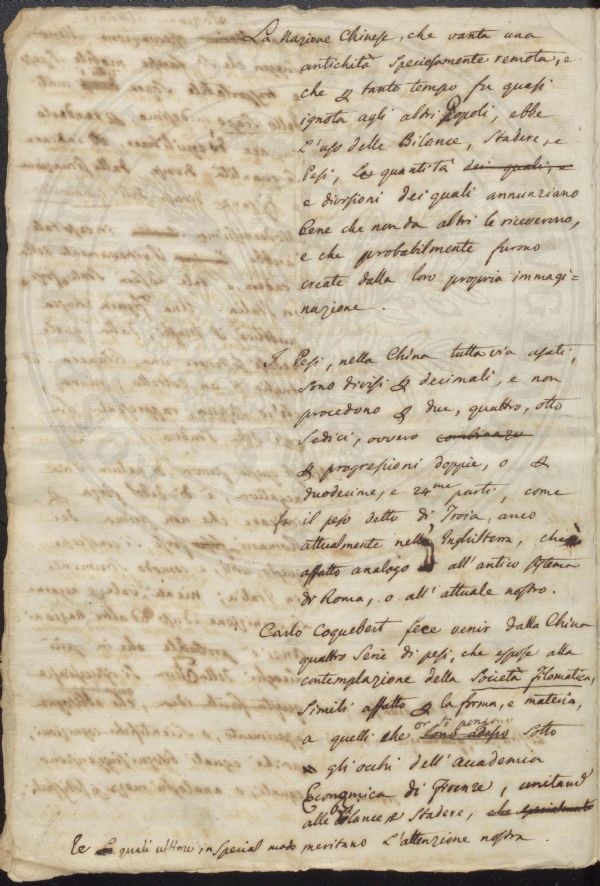 La Nazione Chinese, che vanta una
antichità speciosamente remota, e
che p tanto tempo fu quasi
ignota agli altri Popoli, ebbe
l'uso delle Bilance, Stadere, e
Pesi, le quantità dei quali, e
e divisioni dei quali annunziano
bene che non da altri le riceverono,
e che probabilmente furono
create dalla loro propria immagi-
nazione.
I Pesi, nella China tuttavia usati,
sono divisi p decimali, e non
procedono p due, quattro, otto
sedici, ovvero
p progressioni doppie, o p
duodecime, e 24me parti, come
fa il peso detto di Troia, anco
attualmente nell' Inghilterra, che è
affatto analogo all'antico sistema
di Roma, o all'attuale nostro.
Carlo Coquebert fece venir dalla China
quattro serie di pesi, che espose alla
contemplazione della Società filomatica,
simili affatto p la forma, e materia,
or si pongono
a quelli che sono adesso sotto
gli occhi dell'Accademia
Economica di Firenze, unitamte
alle Bilance, e Stadere, che
le quali ultime, in special modo meritano l'attenzione nostra.